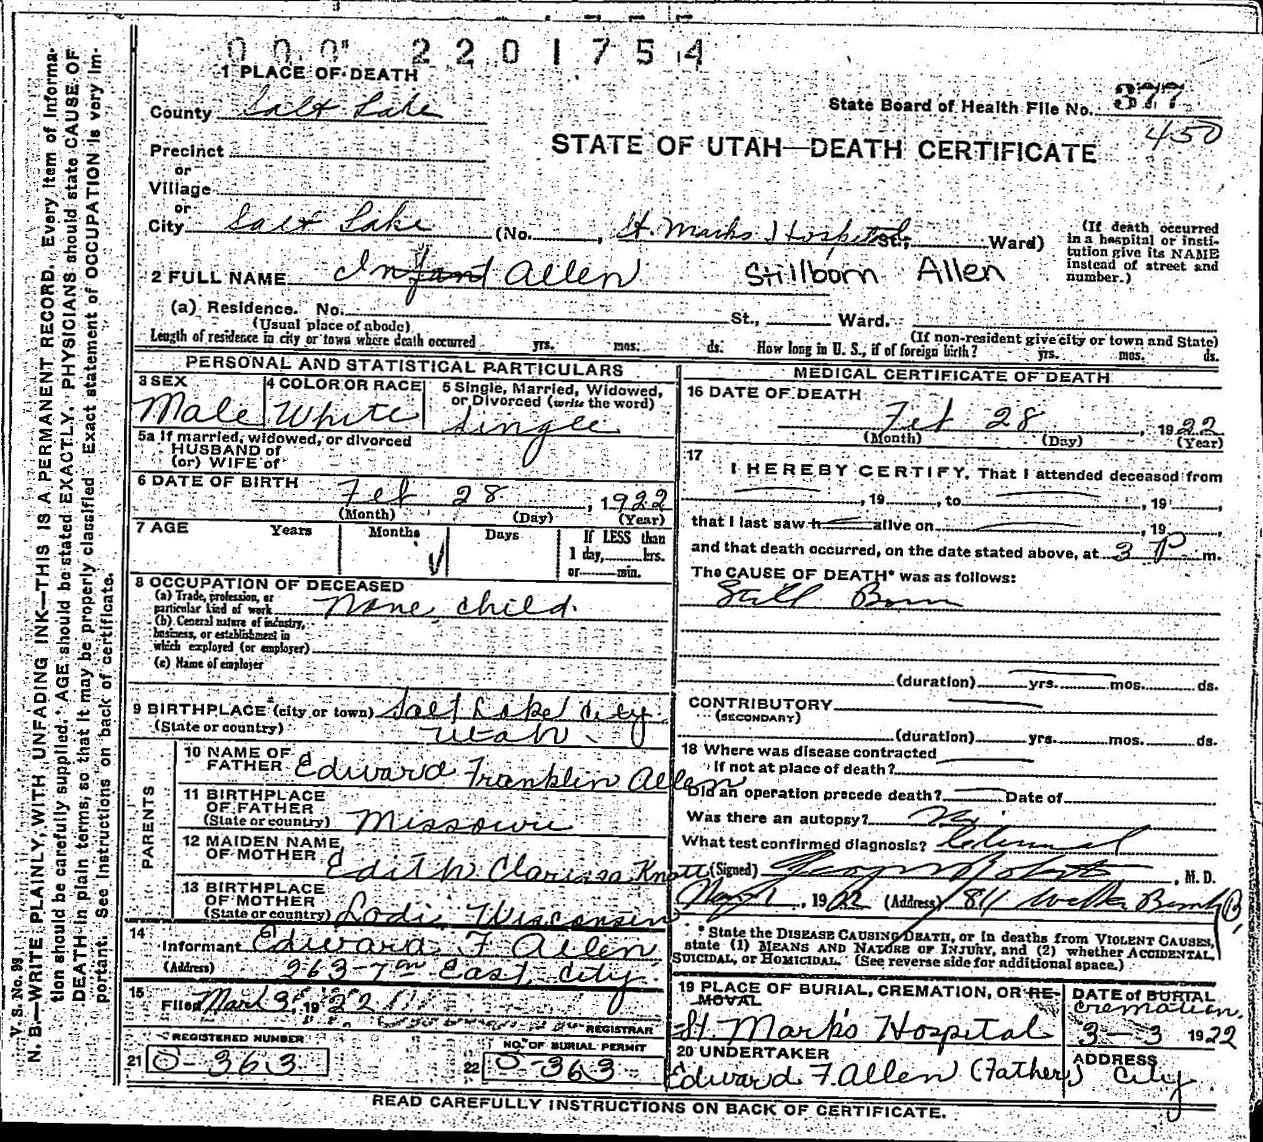 000 2201754
1 PLACE OF DEATH
County Salt Lake
State Board of Health File No. 377
450
STATE OF UTAH—DEATH CERTIFICATE
Precinct
or
Village
or
City Salt Lake (No. , St. Marks Hospital St., Ward)
(If death occurred in a hospital or institution give its NAME instead of street and number.)
2 FULL NAME Infant Allen Stillborn Allen
(a) Residence. No. St., Ward.
(Usual place of abode) (If non-resident give city or town and State)
Length of residence in city or town where death occurred yrs. mos. ds. How long in U. S., if of foreign birth? yrs. mos. ds.
PERSONAL AND STATISTICAL PARTICULARS
3 SEX 4 COLOR OR RACE 5 Single, Married, Widowed, or Divorced (write the word)
Male White Single
5a If married, widowed, or divorced
HUSBAND of
(or) WIFE of
6 DATE OF BIRTH Feb 28, 1922
(Month) (Day) (Year)
7 AGE Years Months Days If LESS than
1 day, hrs.
or min.
8 OCCUPATION OF DECEASED
(a) Trade, profession, or
particular kind of work None, child.
(b) General nature of industry,
business, or establishment in
which employed (or employer)
(c) Name of employer
9 BIRTHPLACE (city or town) Salt Lake City
(State or country) Utah
PARENTS
10 NAME OF
FATHER Edward Franklin Allen
11 BIRTHPLACE
OF FATHER
(State or country) Missouri
12 MAIDEN NAME
OF MOTHER Edith Clarissa Knott
13 BIRTHPLACE
OF MOTHER
(State or country) Lodi, Wisconsin
14
Informant Edward F Allen
(Address) 263-7th East, City
15
Filed Mar 3, 1922
REGISTRAR
REGISTERED NUMBER NO. OF BURIAL PERMIT
21 O-363 22 O-363
MEDICAL CERTIFICATE OF DEATH
16 DATE OF DEATH
Feb 28, 1922
(Month) (Day) (Year)
17
I HEREBY CERTIFY, That I attended deceased from
, 19 , to , 19 ,
that I last saw h alive on , 19 ,
and that death occurred, on the date stated above, at 3 P m.
The CAUSE OF DEATH* was as follows:
Still Born
(duration) yrs. mos. ds.
CONTRIBUTORY
(SECONDARY)
(duration) yrs. mos. ds.
18 Where was disease contracted
If not at place of death?
Did an operation precede death? Date of
Was there an autopsy? No
What test confirmed diagnosis? Clinical
(Signed) , M. D.
Mar 1, 1922 (Address) 811 Walker Bank B
* State the DISEASE CAUSING DEATH, or in deaths from VIOLENT CAUSES,
state (1) MEANS AND NATURE OF INJURY, and (2) whether ACCIDENTAL,
SUICIDAL, or HOMICIDAL. (See reverse side for additional space.)
19 PLACE OF BURIAL, CREMATION, OR REMOVAL DATE of BURIAL
Cremation.
St. Mark's Hospital 3-3 1922
20 UNDERTAKER ADDRESS
Edward F. Allen (Father) City
READ CAREFULLY INSTRUCTIONS ON BACK OF CERTIFICATE.
V. S. No. 99
N. B.—WRITE PLAINLY, WITH UNFADING INK—THIS IS A PERMANENT RECORD. Every item of informa-
tion should be carefully supplied. AGE should be stated EXACTLY. PHYSICIANS should state CAUSE OF
DEATH in plain terms, so that it may be properly classified. Exact statement of OCCUPATION is very im-
portant. See instructions on back of certificate.